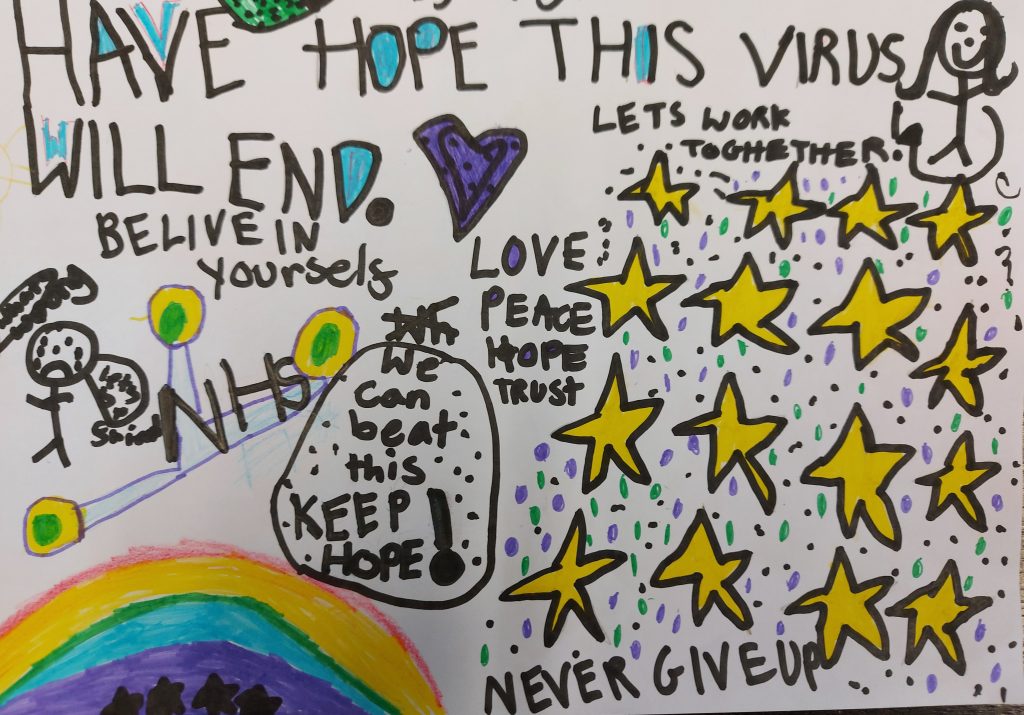 HAVE HOPE THIS VIRUS
WILL END.
LETS WORK
TOGHETHER.
BELIVE IN
yourself
LOVE
PEACE
HOPE
TRUST
NHS
We
Can
beat
this
KEEP
HOPE!
NEVER GIVE UP